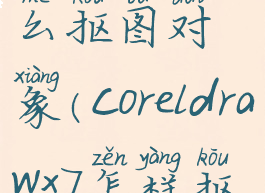 么抠图对
xiàng
象(coreldra
zěn yàng kōu
wx7怎样抠